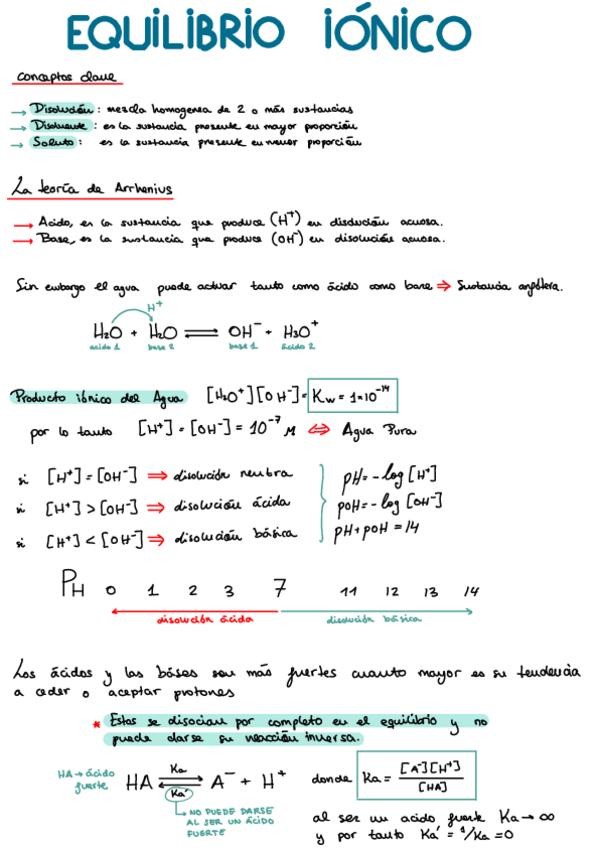 EQUILIBRIO IÓNICO
conceptos clave
→ Disolución: mezcla homogenea de 2 o más sustancias
→ Disolvente: es la sustancia presente en mayor proporción
→ Soluto: es la sustancia presente en menor proporción
La teoría de Arrhenius
→ Acido, es la sustancia que produce (H⁺) en disolución acuosa.
→ Base, es la sustancia que produce (OH⁻) en disolución acuosa.
Sin embargo el agua puede actuar tanto como ácido como base ⇒ Sustancia anfótera.
H⁺
H₂O + H₂O ⇌ OH⁻ + H₃O⁺
acido 1 base 2 base 1 ácido 2
Producto iónico del Agua [H₃O⁺][OH⁻] = Kw = 1×10⁻¹⁴
por lo tanto [H⁺] = [OH⁻] = 10⁻⁷ M ⇔ Agua Pura
si [H⁺] = [OH⁻] ⇒ disolución neutra
si [H⁺] > [OH⁻] ⇒ disolución ácida
si [H⁺] < [OH⁻] ⇒ disolución básica
pH = -log [H⁺]
pOH = -log [OH⁻]
pH + pOH = 14
PH 0 1 2 3 7 11 12 13 14
disolución ácida disolución básica
Los ácidos y las báses son más fuertes cuanto mayor es su tendencia
a ceder o aceptar protones
* Estas se disocian por completo en el equilibrio y no
puede darse su reacción inversa.
HA → ácido
fuerte
HA ⇌ A⁻ + H⁺
Ka
Ka'
donde Ka = [A⁻][H⁺] / [HA]
→ NO PUEDE DARSE
AL SER UN ÁCIDO
FUERTE
al ser un acido fuerte Ka → ∞
y por tanto Ka' = 1/Ka = 0